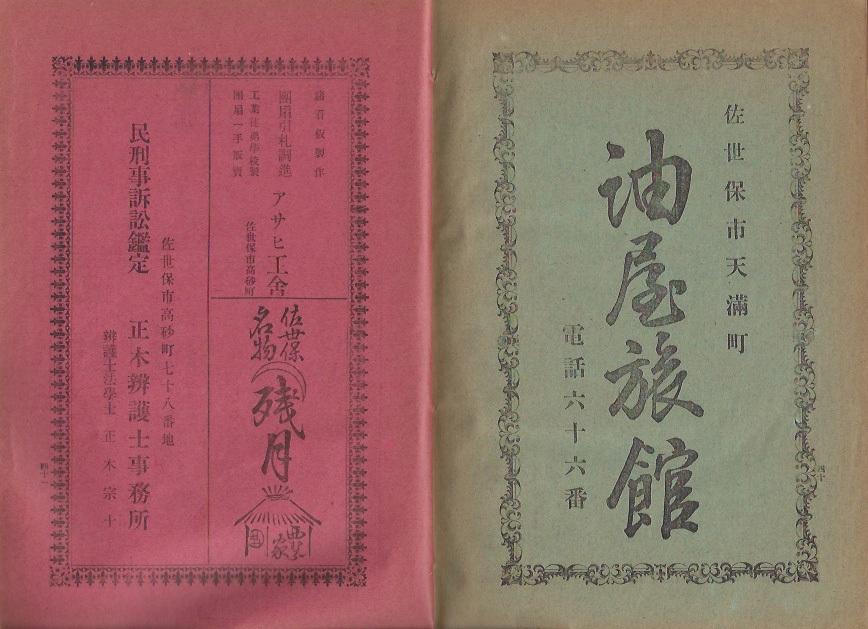 佐世保市天滿町
油屋旅館
電話六十六番
四十
諸看板製作
團扇引札調進
工業徒弟學校製
團扇一手販賣
アサヒ工舍
佐世保市高砂町
佐世保
名物
残月
民刑事訴訟鑑定
佐世保市高砂町七十八番地
正木辨護士事務所
辨護士法學士 正木宗十
四十一